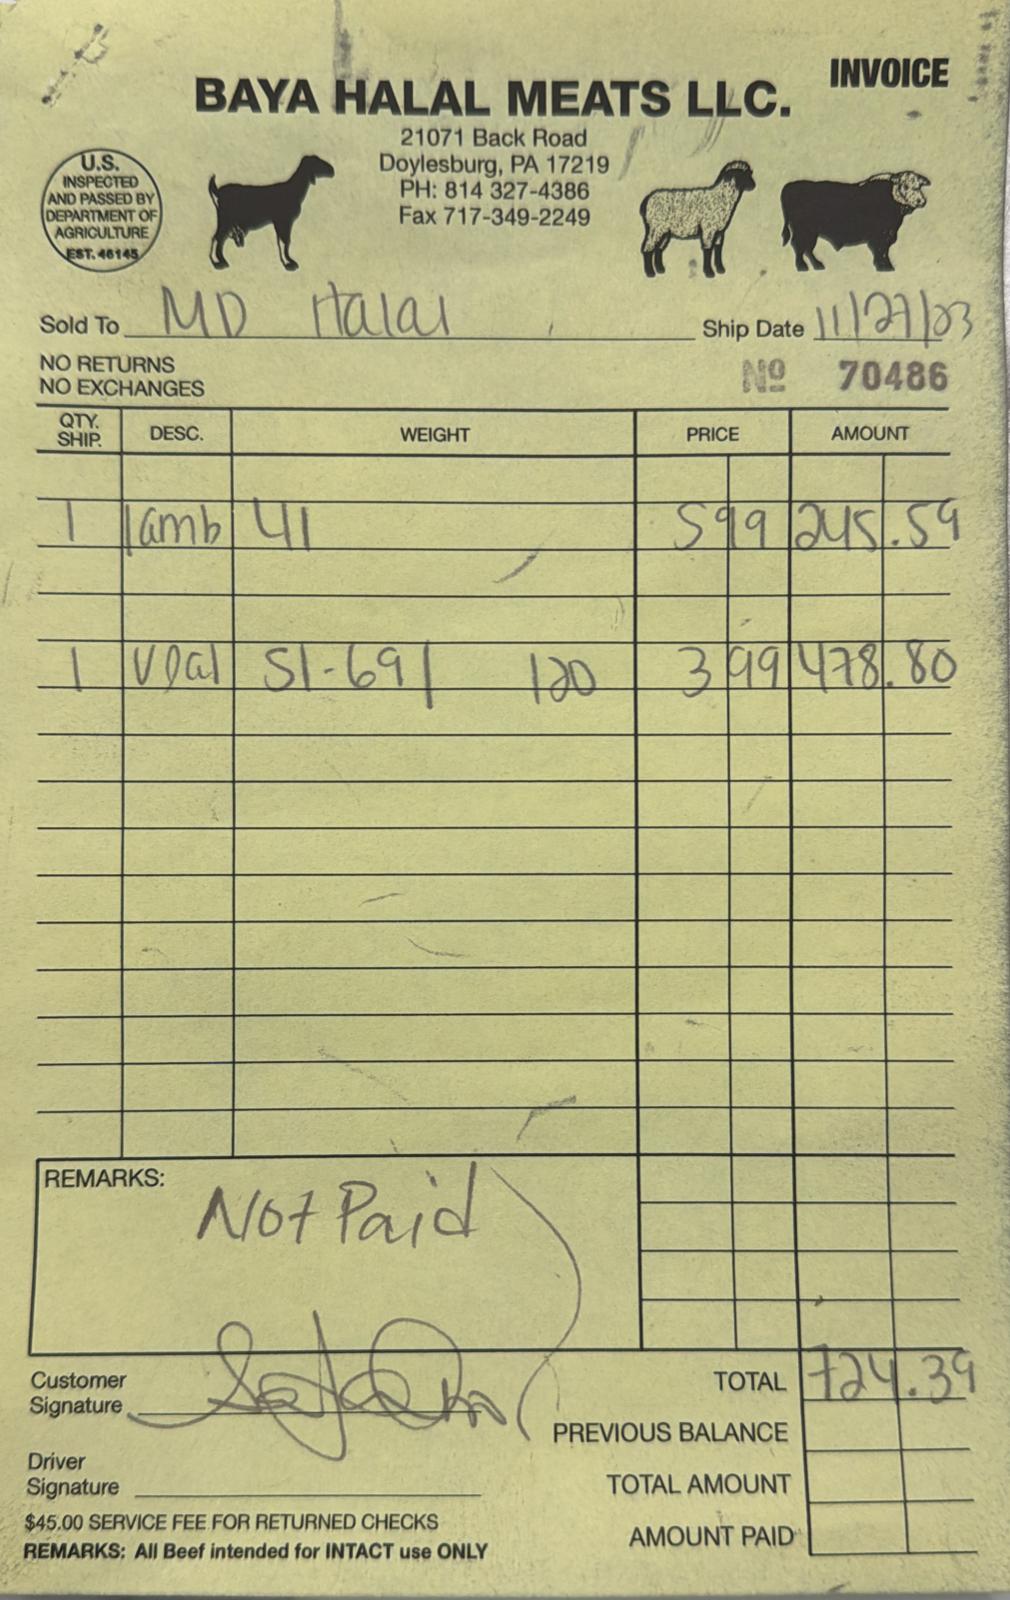 INVOICE
BAYA HALAL MEATS LLC.
21071 Back Road
Doylesburg, PA 17219
PH: 814 327-4386
Fax 717-349-2249
U.S.
INSPECTED
AND PASSED BY
DEPARTMENT OF
AGRICULTURE
EST. 46145
Sold To MD Halal Ship Date 11/27/23
NO RETURNS
NO EXCHANGES
Nº 70486
QTY. SHIP. DESC. WEIGHT PRICE AMOUNT
1 lamb 41 5 99 245.59
1 veal 51-69/ 120 3 99 478.80
REMARKS: Not Paid
Customer
Signature
TOTAL 724.39
PREVIOUS BALANCE
Driver
Signature
TOTAL AMOUNT
$45.00 SERVICE FEE FOR RETURNED CHECKS
AMOUNT PAID
REMARKS: All Beef intended for INTACT use ONLY